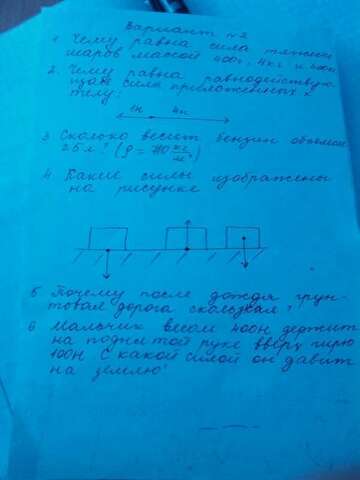 Вариант №2
1. Чему равна сила тяжести
шаров массой 400г, 4кг и
2. Чему равна равнодействую
щая сила приложенных к
телу:
1н 4н
3 Сколько весит бензин объемом
25л? (ρ = 710 кг/м³)
4. Какие силы изображены
на рисунке
5 Почему после дождя грун-
товая дорога скользкая?
6. Мальчик весом 400н держит
на поднятой руке вверх гирю
100н С какой силой он давит
на землю?